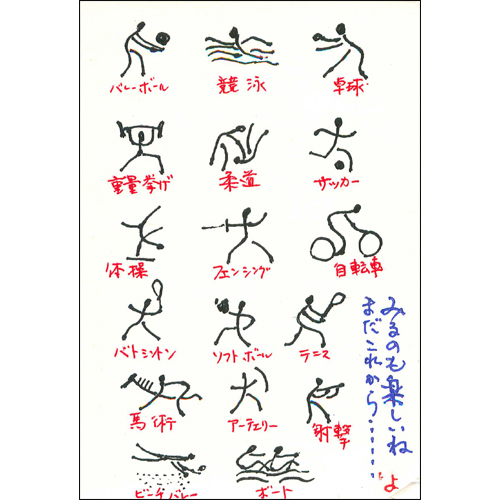 バレーボール
競泳
卓球
重量挙げ
柔道
サッカー
体操
フェンシング
自転車
バトミントン
ソフトボール
テニス
馬術
アーチェリー
射撃
ビーチバレー
ボート
みるのも楽しいね
まだこれから……
だよ